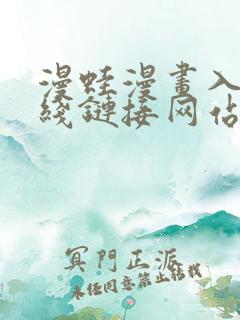 漫蛙漫畫入
綫鏈接网佔
冥門正派
未经同意禁止转载